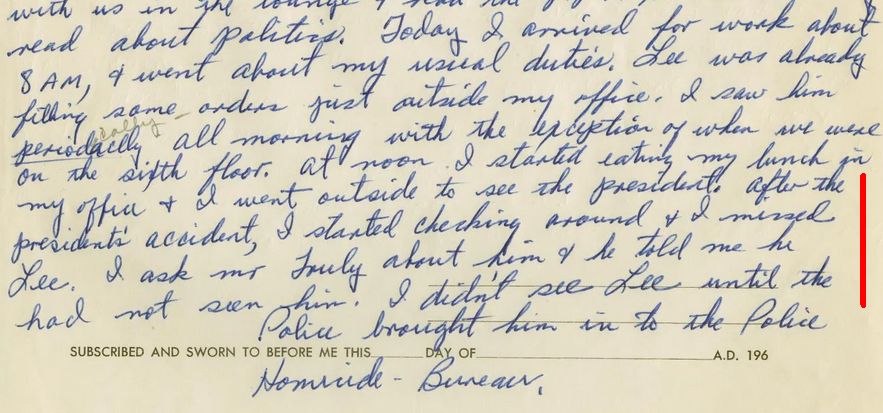 with us in the lounge & read the
read about politics. Today I arrived for work about
8 AM, & went about my usual duties. Lee was already
filling some orders just outside my office. I saw him
periodaclly cally all morning with the exception of when we were
on the sixth floor. At noon I started eating my lunch in
my office & I went outside to see the president. After the
presidents' accident, I started checking around & I missed
Lee. I ask mr Truly about him & he told me he
had not seen him. I didn't see Lee until the
Police brought him in to the Police
SUBSCRIBED AND SWORN TO BEFORE ME THIS DAY OF A.D. 196
Homicide - Bureau.